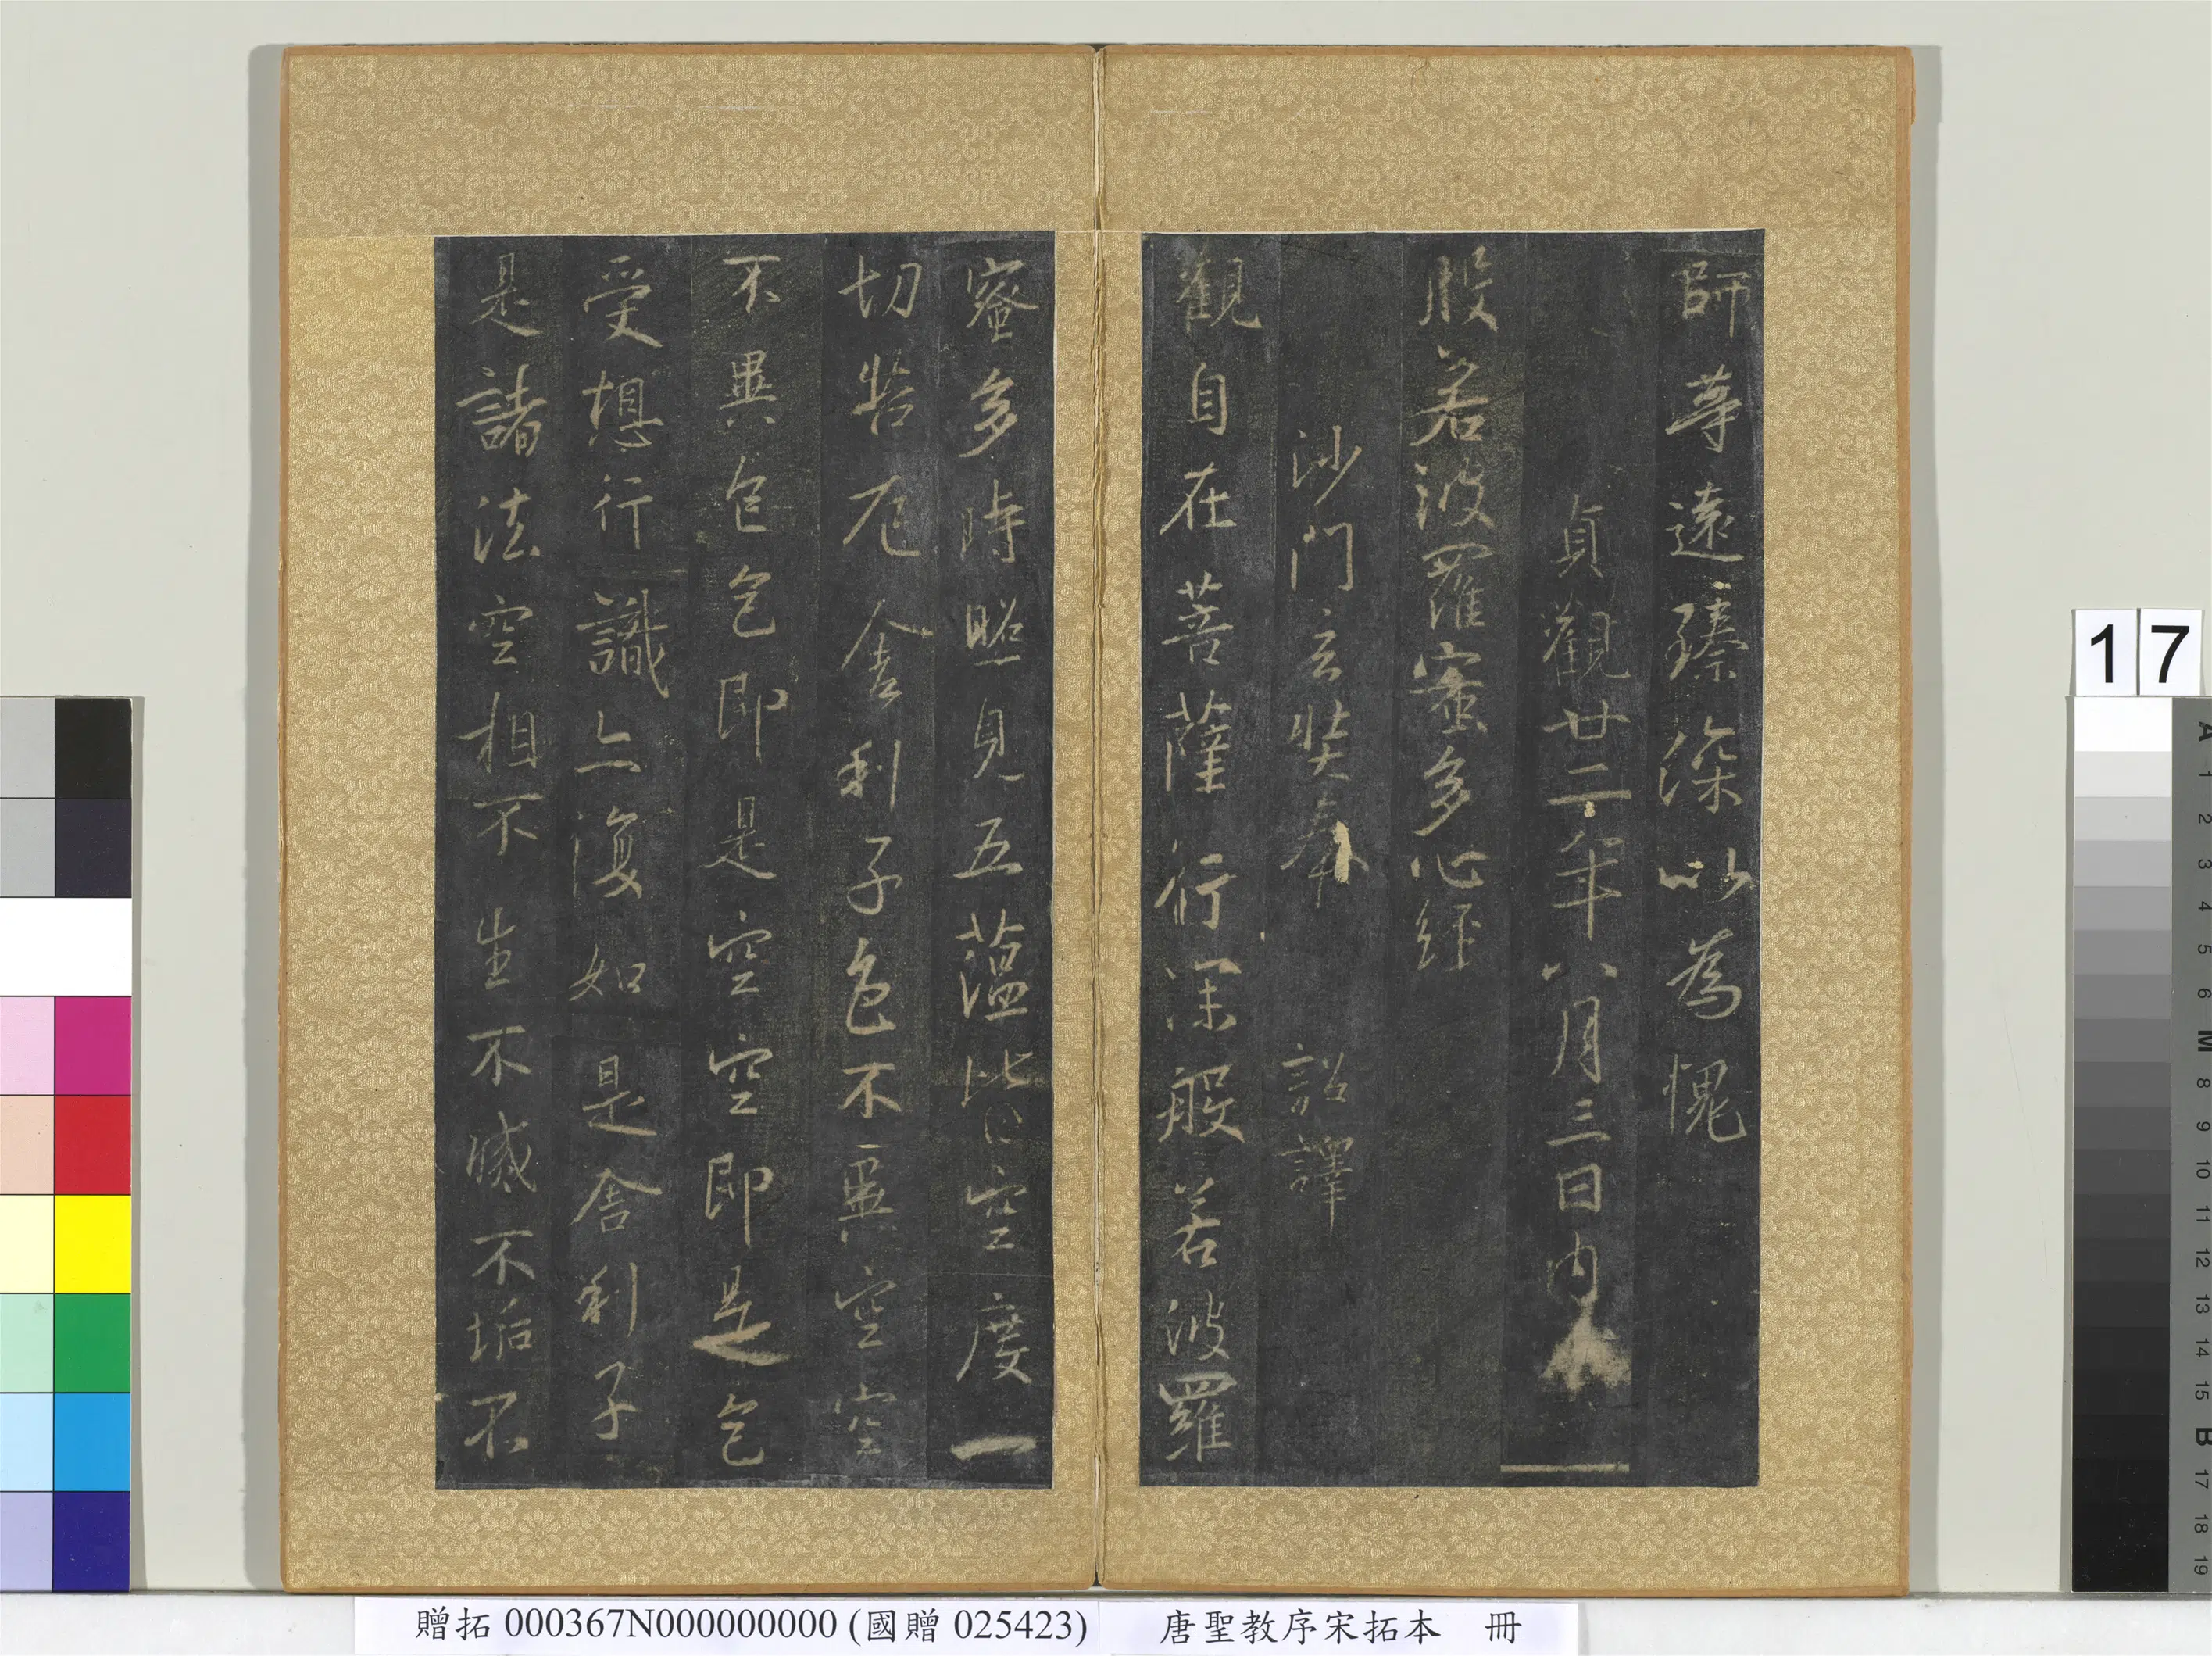 師等遠臻深以為愧
貞觀廿二年八月三日內
般若波羅蜜多心經
沙門玄奘奉 詔譯
觀自在菩薩行深般若波羅
蜜多時照見五蘊皆空度一
切苦厄舍利子色不異空空
不異色色即是空空即是色
受想行識亦復如是舍利子
是諸法空相不生不滅不垢不
17
A 1 2 3 4 5 6 M 8 9 10 11 12 13 14 15 B 17 18 19
贈拓 000367N000000000 (國贈 025423) 唐聖教序宋拓本 冊